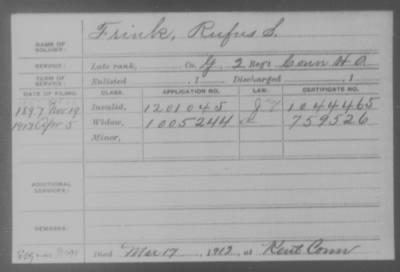 NAME OF SOLDIER: Frink, Rufus S.
SERVICE: Late rank, Co. G, 2 Reg't Conn H A
TERM OF SERVICE: Enlisted , 1 Discharged , 1
DATE OF FILING. CLASS. APPLICATION NO. LAW. CERTIFICATE NO.
1897 Nov 19 Invalid, 1201045 1044465
1912 Apr 5 Widow, 1005244 759526
Minor,
ADDITIONAL SERVICES:
REMARKS:
Died Mar 17, 1912, at Kent Conn